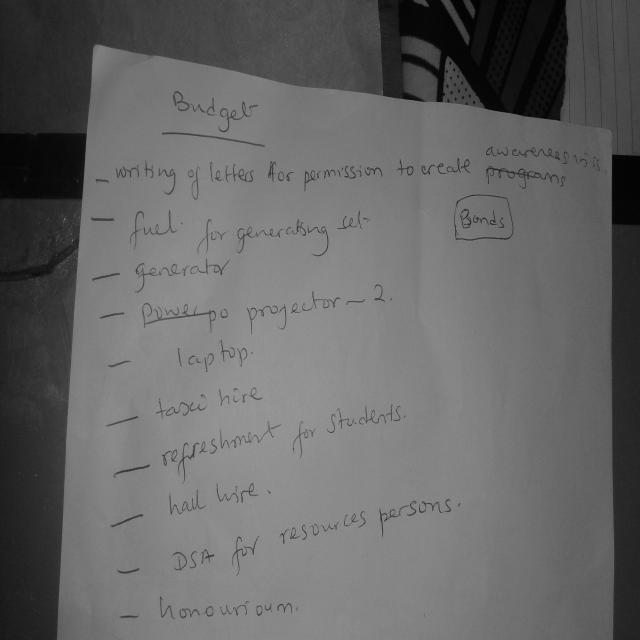 Budget
awareness in
- writing of letters for permission to create programs
- fuel for generating set
Bands
- generator
- power po projector - 2.
- laptop.
- taxi hire
- refreshment for students.
- hall hire.
- DSA for resources persons.
- honourioum.